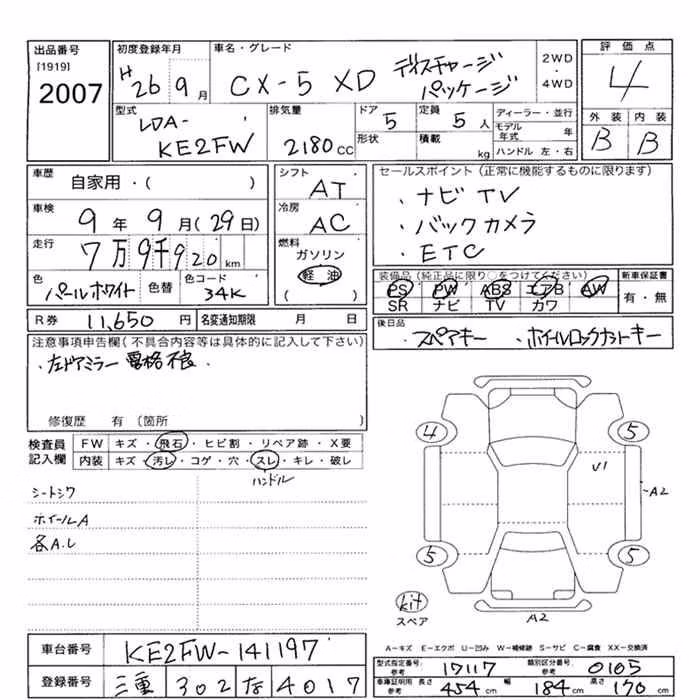 出品番号
[1919]
2007
初度登録年月
H26 9月
車名・グレード
CX-5 XD ディスチャージ
パッケージ
2WD
・
4WD
評価点
4
型式
LDA-
KE2FW
排気量
2180 cc
ドア
5
定員
5 人
形状
積載
kg
ディーラー・並行
モデル
年式 年
ハンドル 左・右
外装 内装
B B
車歴
自家用・( )
車検
9年 9月(29日)
走行
7万9千920 km
色
パールホワイト
色替
色コード
34K
R券 11,650 円
名変通知期限 月 日
シフト
AT
冷房
AC
燃料
ガソリン
軽油
( )
セールスポイント(正常に機能するものに限ります)
・ナビTV
・バックカメラ
・ETC
装備品(純正品に限り○をつけてください)
PS PW ABS エアB AW
SR ナビ TV カワ
新車保証書
有・無
後日品
・スペアキー ・ホイールロックナットキー
注意事項申告欄(不具合内容等は具体的に記入して下さい)
・左ドアミラー 電格不良
修復歴 有(箇所
検査員
記入欄
FW キズ・飛石・ヒビ割・リペア跡・X要
内装 キズ・汚レ・コゲ・穴・スレ・キレ・破レ
ハンドル
シートシワ
ホイールA
各A.L
4 5
U1
A2
5 5
kit
スペア
A2
A-キズ E-エクボ U-凹み W-補修跡 S-サビ C-腐食 XX-交換済
車台番号 KE2FW-141197
登録番号 三重 302 な 4017
型式指定番号
参考
17117
類別区分番号
参考
0105
車庫証明用
参考
長さ 454 cm 幅 184 cm 高さ 170 cm